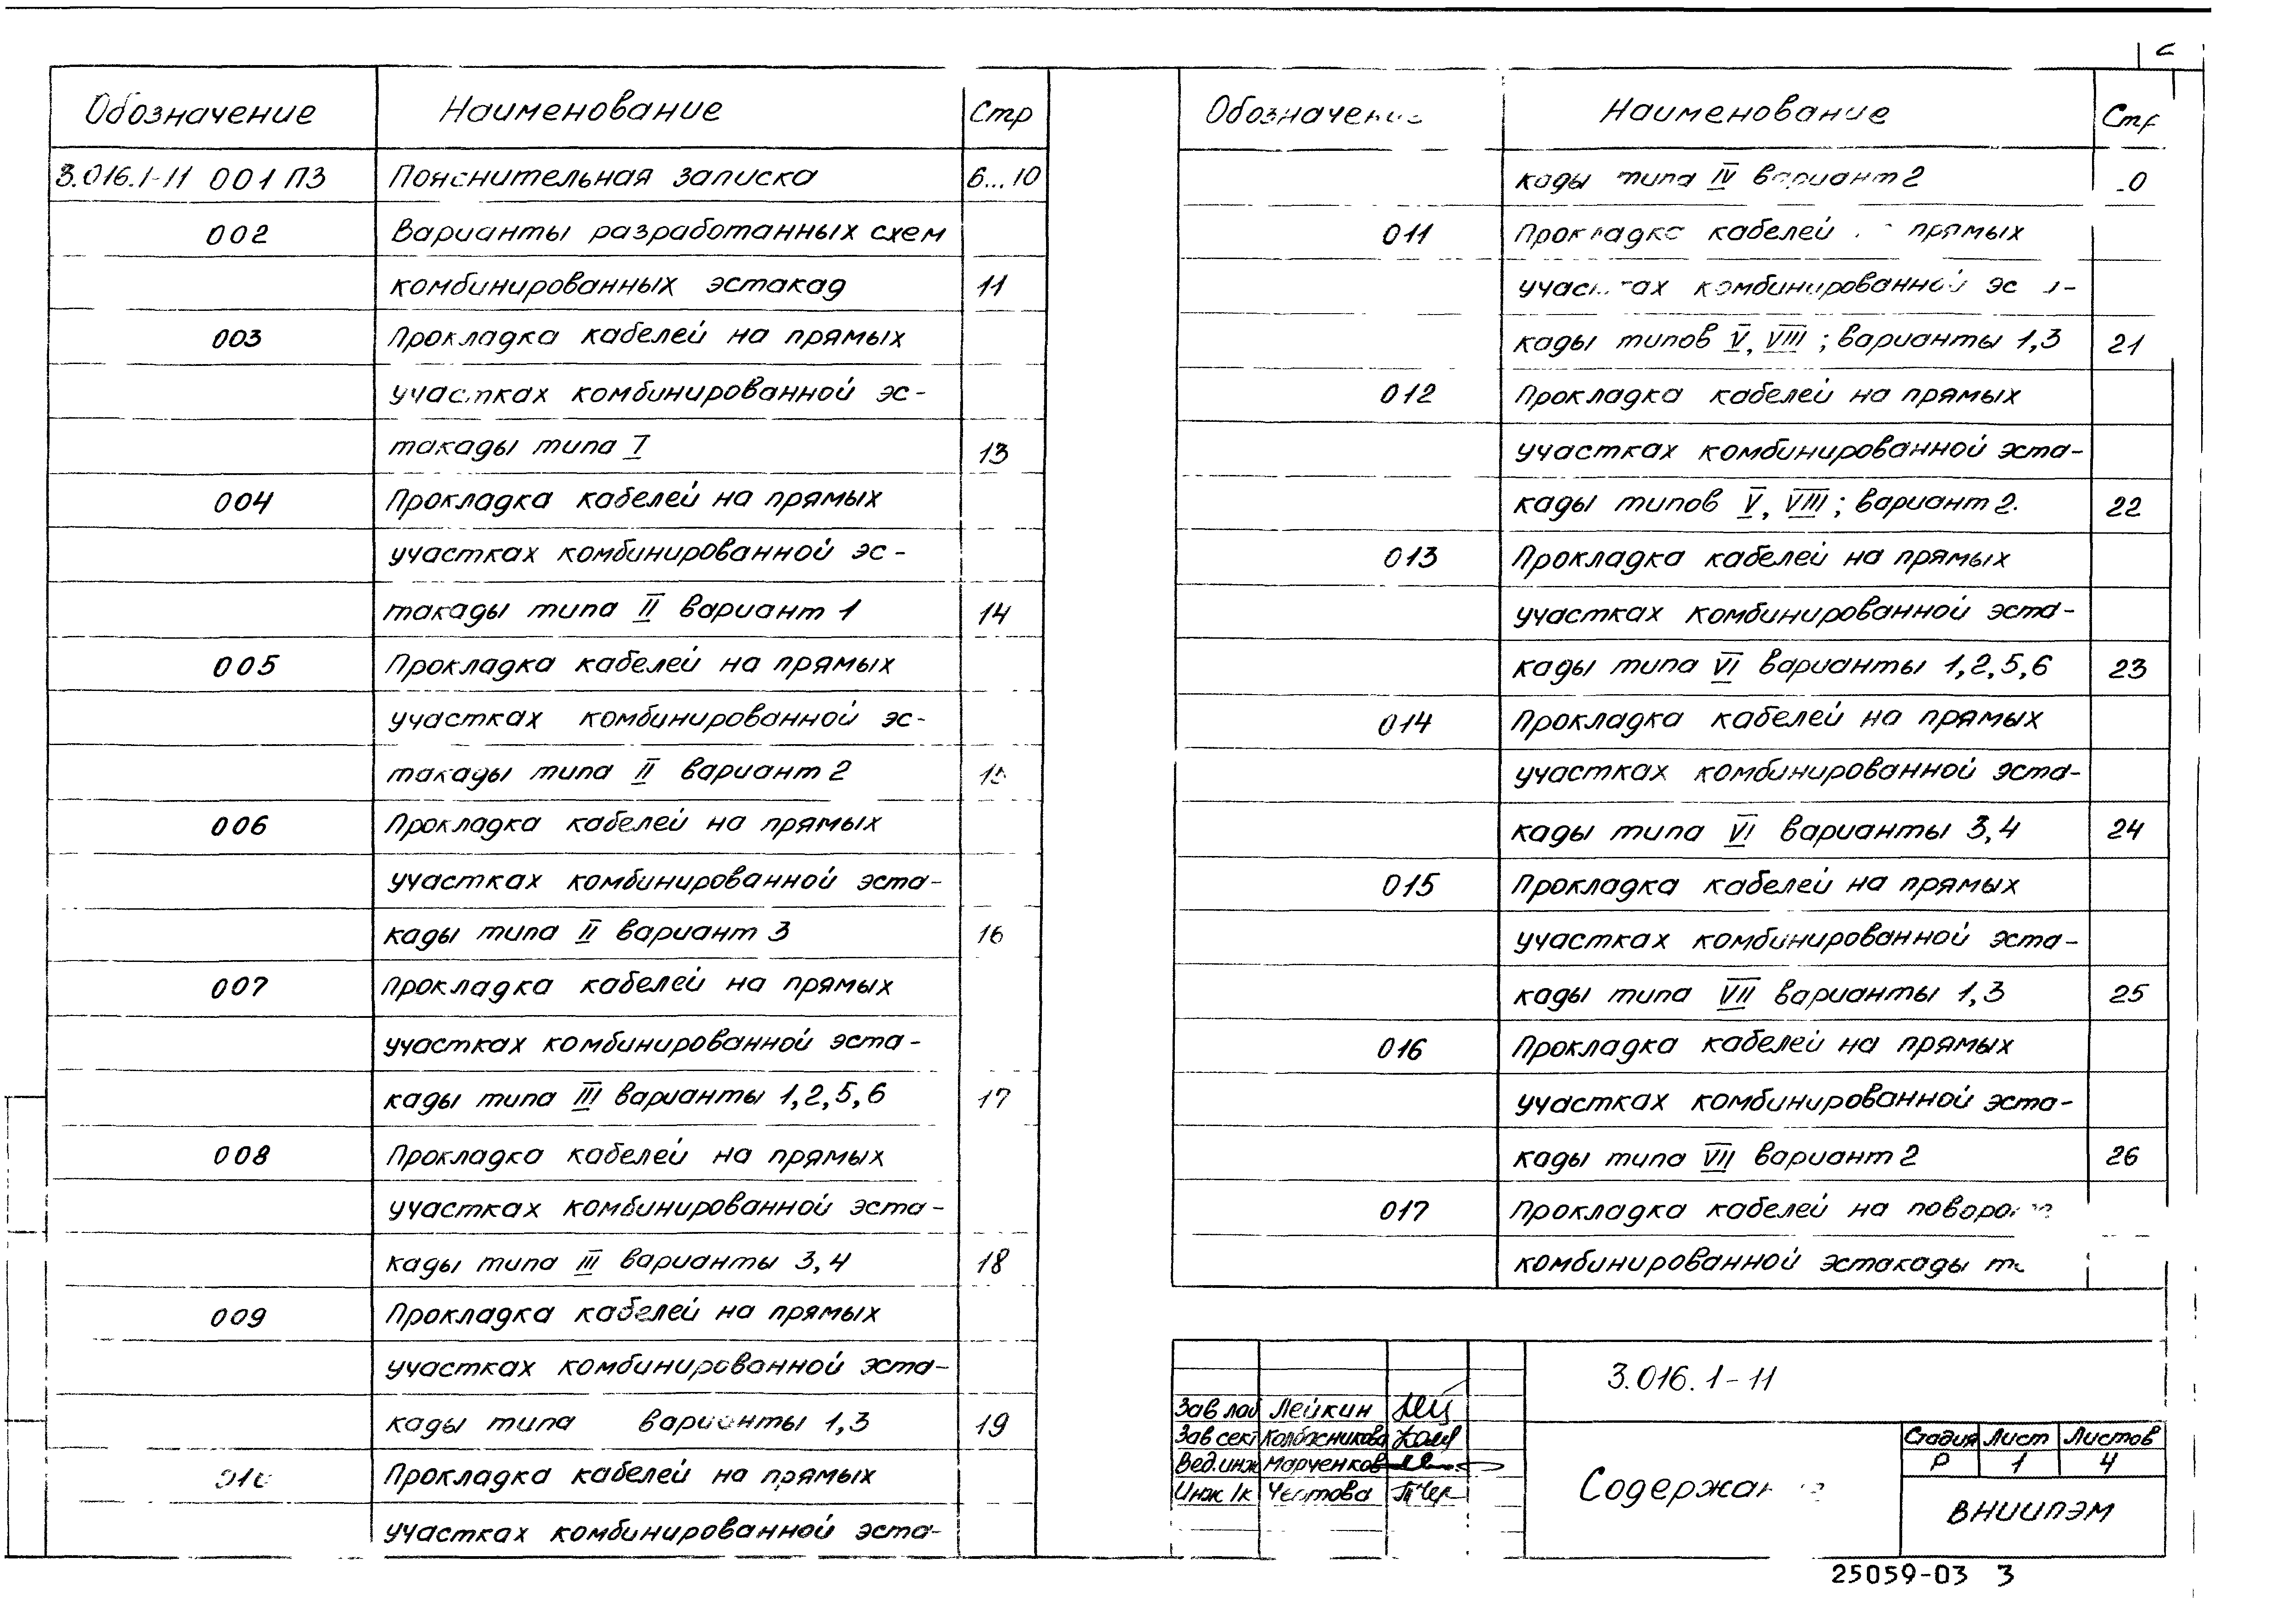 Обозначение Наименование Стр
3.016.1-11 001 ПЗ Пояснительная записка 6...10
002 Варианты разработанных схем
комбинированных эстакад 11
003 Прокладка кабелей на прямых
участках комбинированной эс-
такады типа I 13
004 Прокладка кабелей на прямых
участках комбинированной эс-
такады типа II вариант 1 14
005 Прокладка кабелей на прямых
участках комбинированной эс-
такады типа II вариант 2 15
006 Прокладка кабелей на прямых
участках комбинированной эста-
кады типа II вариант 3 16
007 Прокладка кабелей на прямых
участках комбинированной эста-
кады типа III варианты 1,2,5,6 17
008 Прокладка кабелей на прямых
участках комбинированной эста-
кады типа III варианты 3,4 18
009 Прокладка кабелей на прямых
участках комбинированной эста-
кады типа варианты 1,3 19
010 Прокладка кабелей на прямых
участках комбинированной эста-
Обозначение Наименование Стр
кады типа IV вариант 2
011 Прокладка кабелей прямых
участках комбинированной
кады типов V, VIII; варианты 1,3 21
012 Прокладка кабелей на прямых
участках комбинированной эста-
кады типов V, VIII; вариант 2. 22
013 Прокладка кабелей на прямых
участках комбинированной эста-
кады типа VI варианты 1,2,5,6 23
014 Прокладка кабелей на прямых
участках комбинированной эста-
кады типа VI варианты 3,4 24
015 Прокладка кабелей на прямых
участках комбинированной эста-
кады типа VII варианты 1,3 25
016 Прокладка кабелей на прямых
участках комбинированной эста-
кады типа VII вариант 2 26
017 Прокладка кабелей на
комбинированной эстакады
3.016.1-11
Зав лаб Лейкин
Зав сект Колбасникова
Вед.инж Марченков
Инж Iк
Содержание
Стадия Лист Листов
Р 1 4
ВНИИПЭМ
25059-03 3